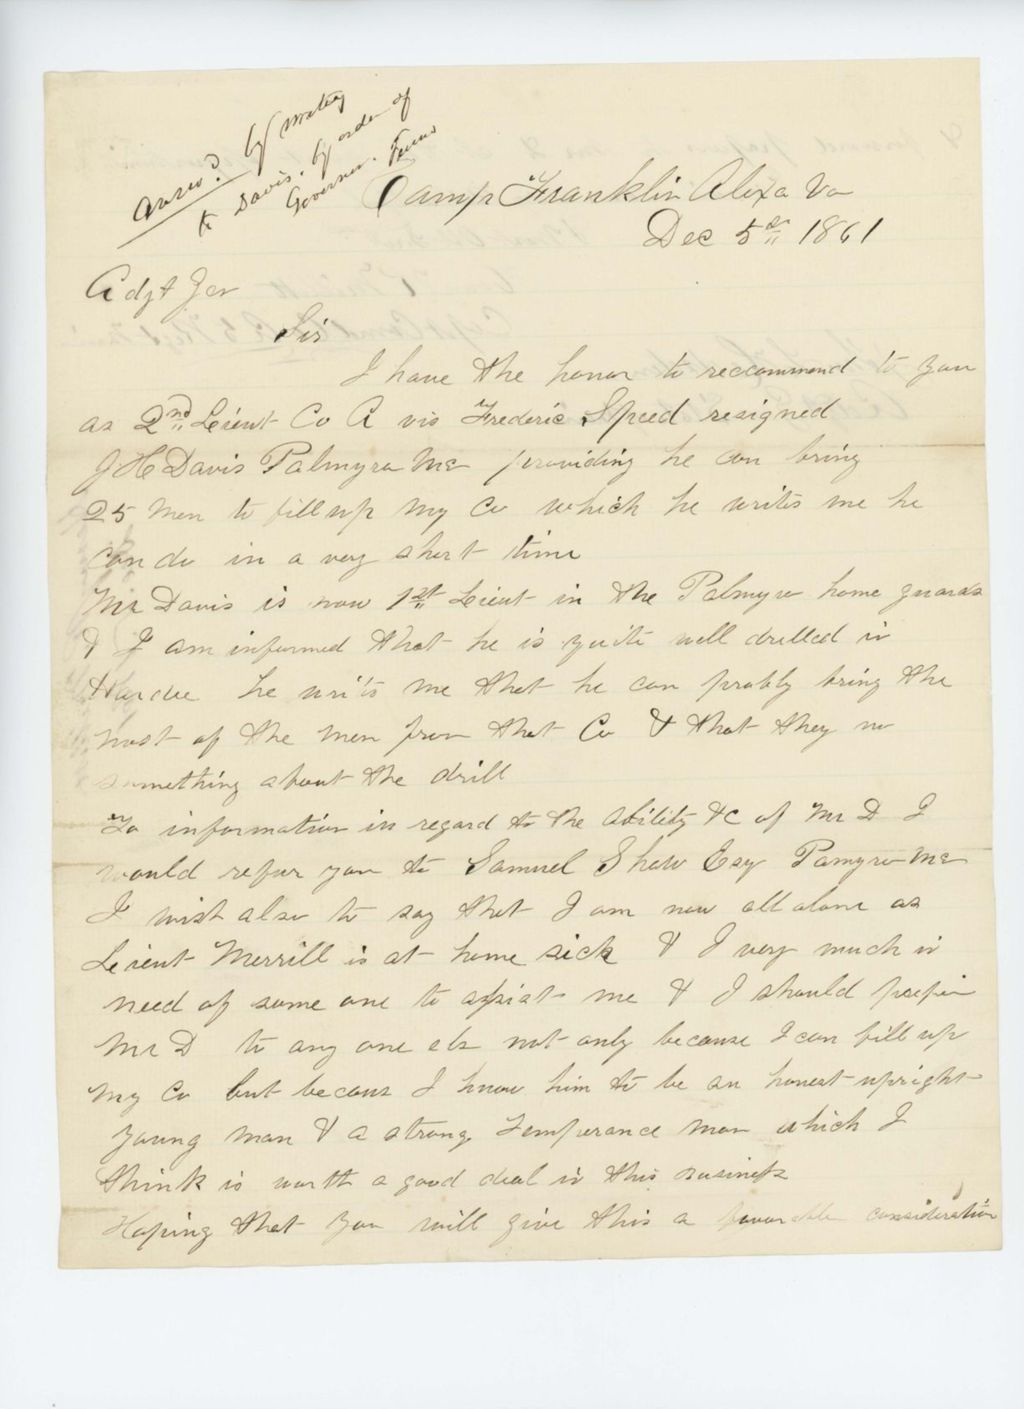 Answd by
to Davis. by order of
Governor.
Camp Franklin Alexa Va
Dec 5th 1861
Adgt Gen
Sir
I have the honor to reccommend to you
as 2nd Leieut Co A vis Frederic Speed resigned
J H Davis Palmyra Me providing he can bring
25 men to fill up my Co which he writes me he
can do in a very short time
Mr Davis is now 1st Leieut in the Palmyra home guards
& I am informed that he is quite well drilled in
Hardee he writs me that he can probly bring the
most of the men from that Co & that they no
something about the drill
To information in regard to the ability &C of Mr D I
would refur you to Samuel Shaw Esq Pamyra Me
I wish also to say that I am now all alone as
Leieut Merrill is at home sick & I very much in
need of some one to assist me & I should prefer
Mr D to any one els not only because I can fill up
my Co but becaus I know him to be an honest upright
young man & a strong Temperance man which I
think is worth a good deal in this business
Hoping that you will give this a favorable consideration